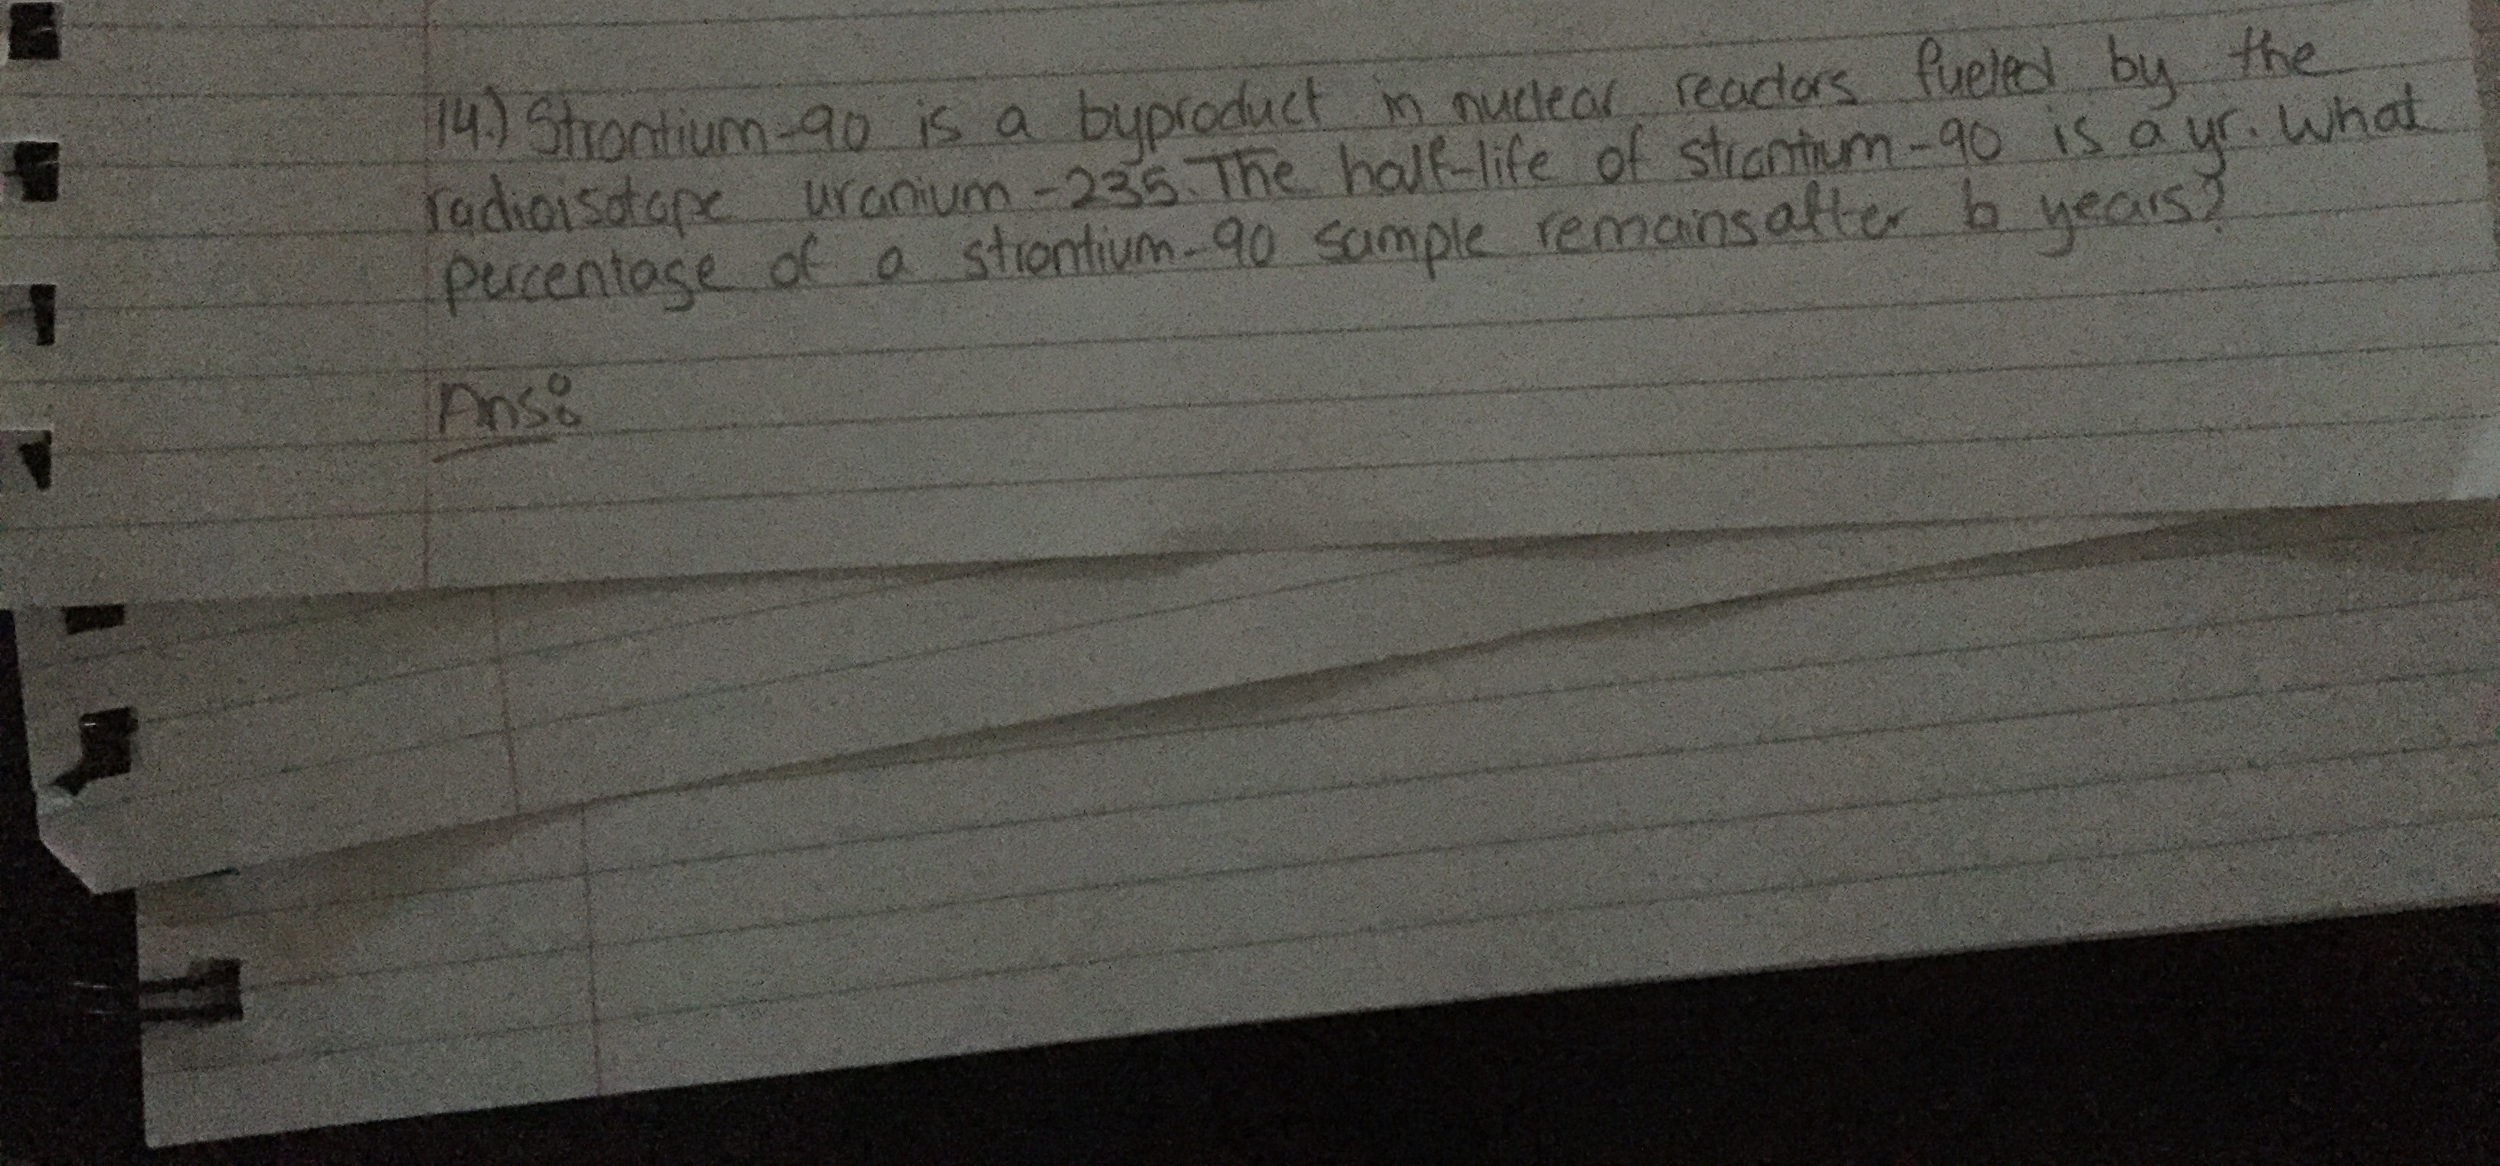 14.) Strontium-90 is a byproduct in nuclear reactors fueled by the
radioisotape uranium-235. The half-life of strontium-90 is a yr. What
percentage of a strontium-90 sample remains after b years?
Ans: